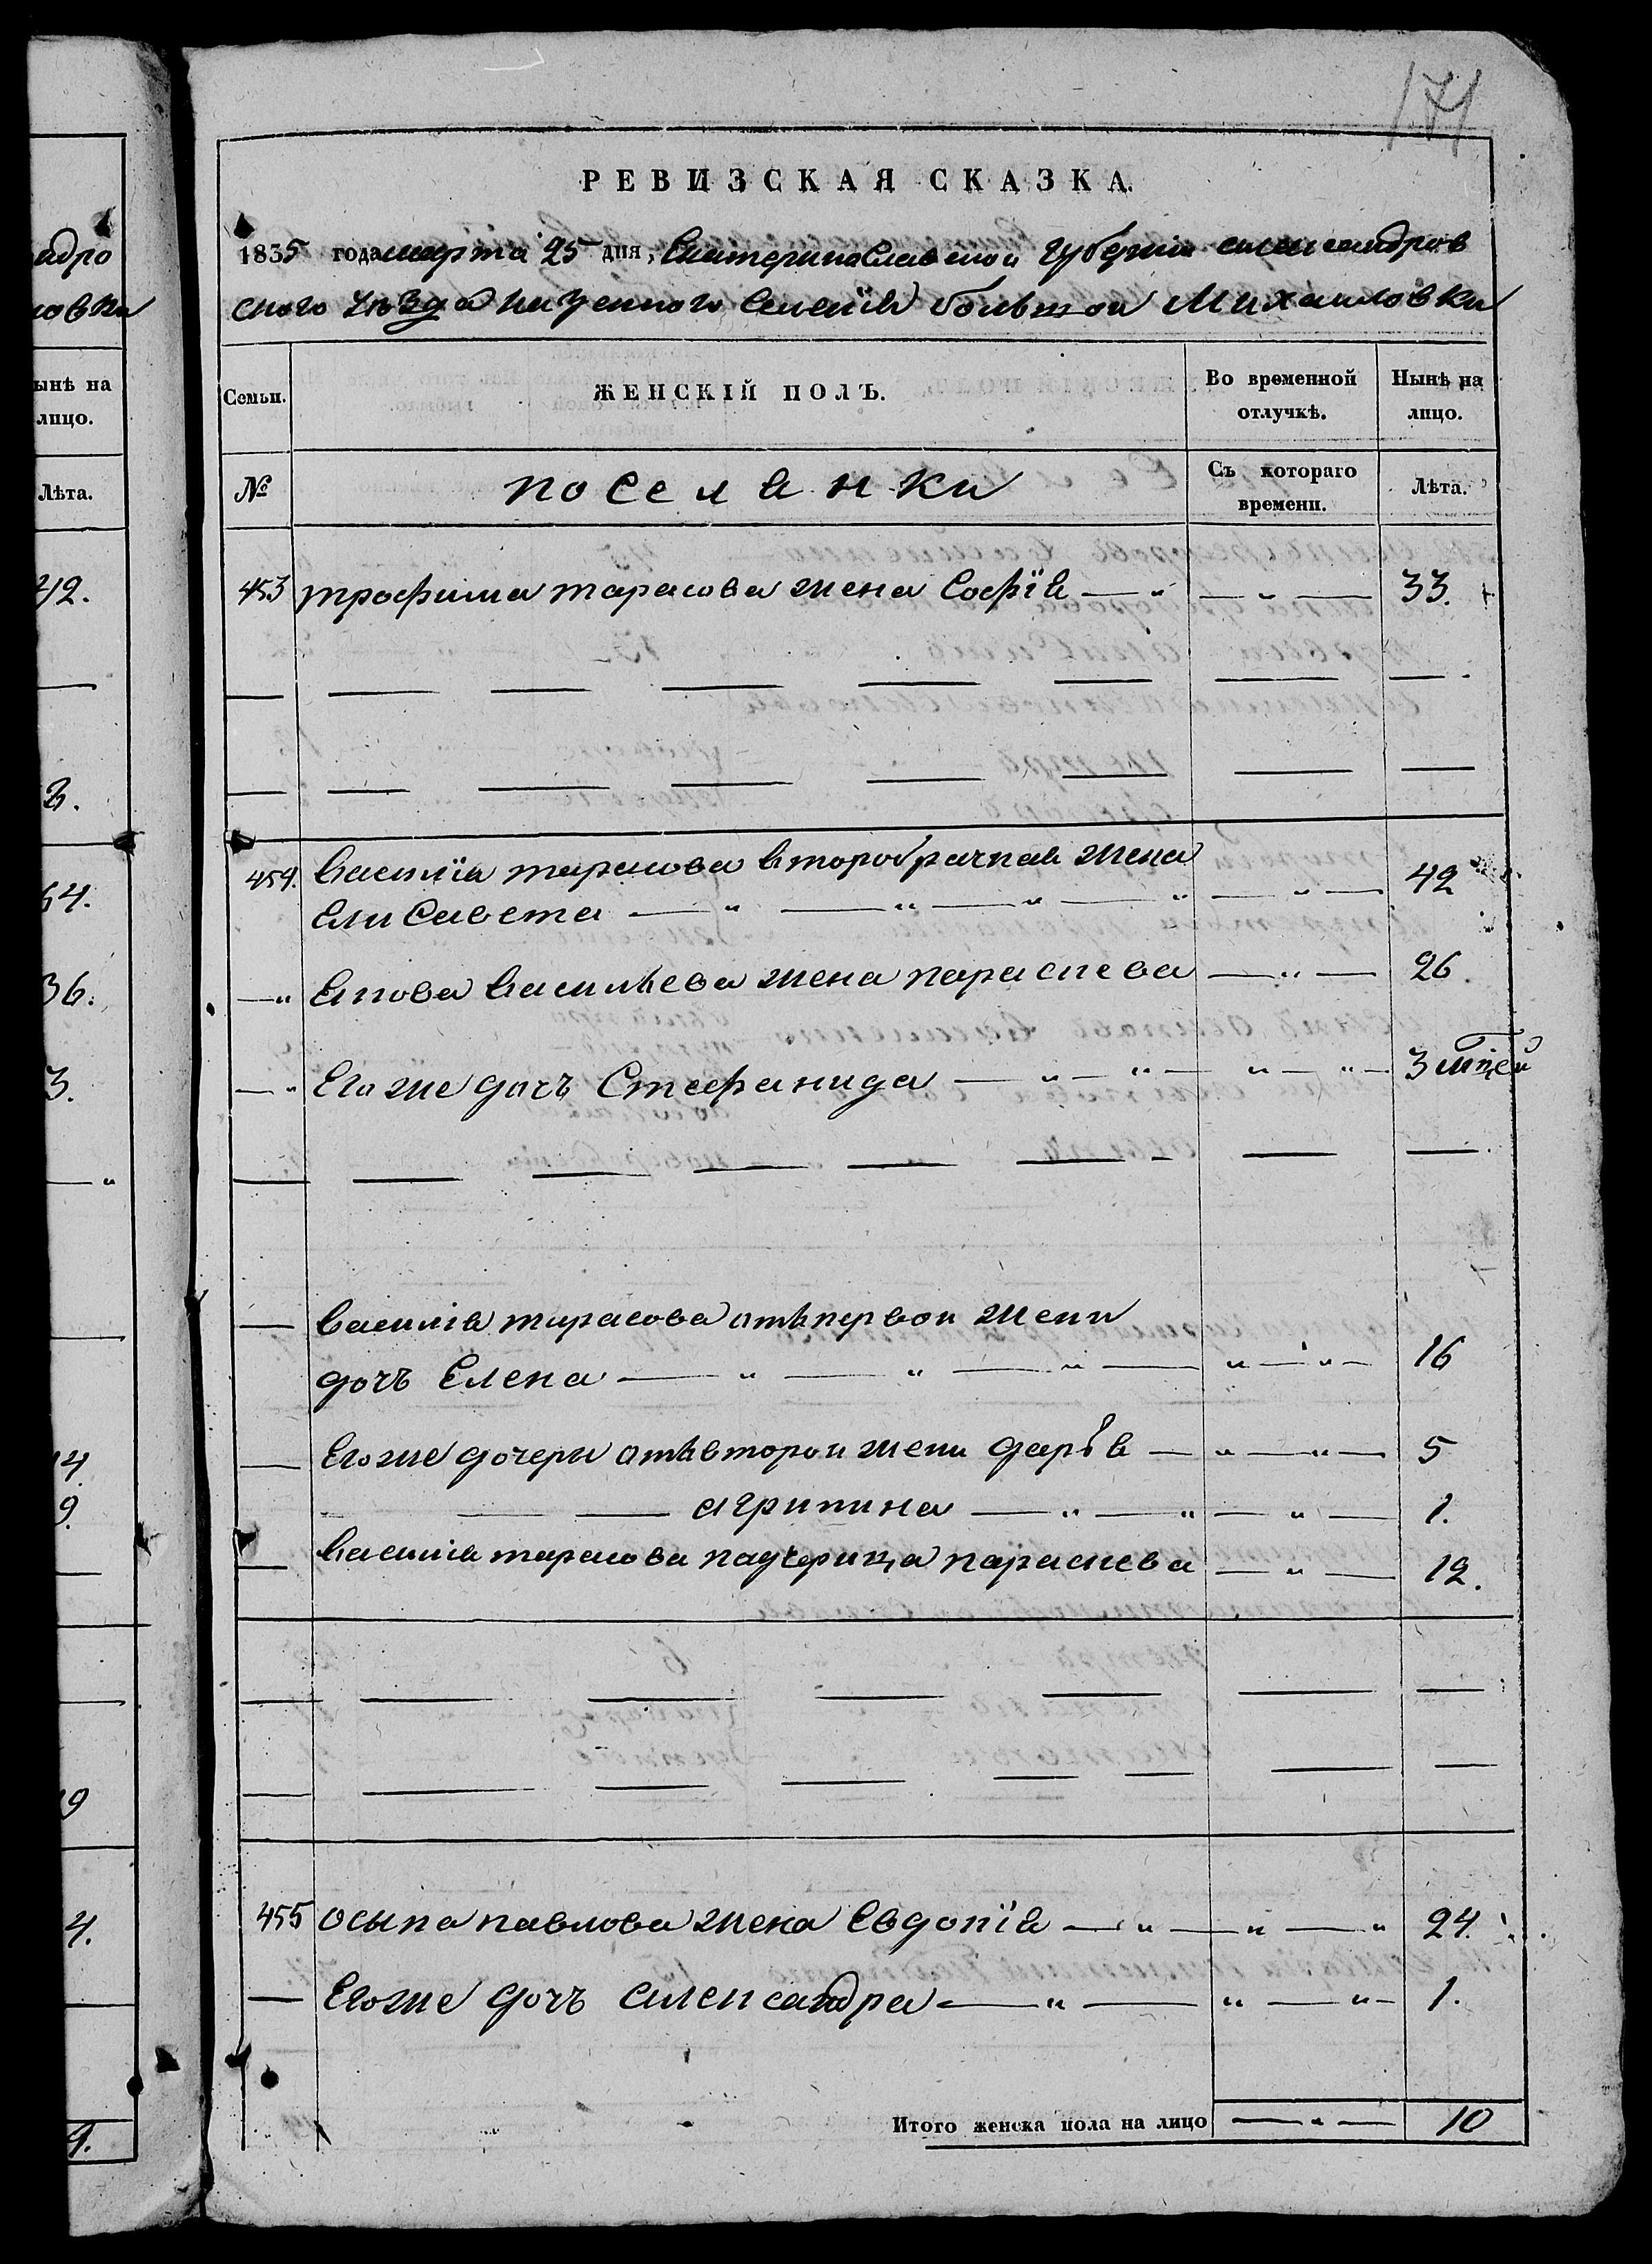 171
РЕВИЗСКАЯ СКАЗКА.
1835 года марта 25 дня, Екатеринославской губерніи александров
ского уѣзда казенного Селенія большой Михаиловки
Семьи. ЖЕНСКІЙ ПОЛЪ. Во временной отлучкѣ. Нынѣ на лицо.
№ поселянки Съ котораго времени. Лѣта.
453 трофима тарасова жена Софія — " — " — 33.
454. Василія тарасова второбрачная жена
Елисавета — " — " — " — " — " — 42
— " Якова Васильева жена параскева — " — 26.
— " Его же дочъ Стефанида — " — " — " — " — 3 мѣсяцей
— Василія тарасова отъ первои жени
дочъ Елена — " — " — " — " — " — 16
— Его же дочери отъ второи жени дарья — " — " — 5
— — агрипина — " — " — " — 1.
— Василія тарасова падчерица параскева — " — 12.
455 осыпа павлова жена Евдокія — " — " — " 24.
— Его же дочъ александра — " — " — " — 1.
Итого женска пола на лицо — " — 10
адро
ловки
ынѣ на
лицо.
Лѣта.
42.
64.
36.
3.
9.
4.